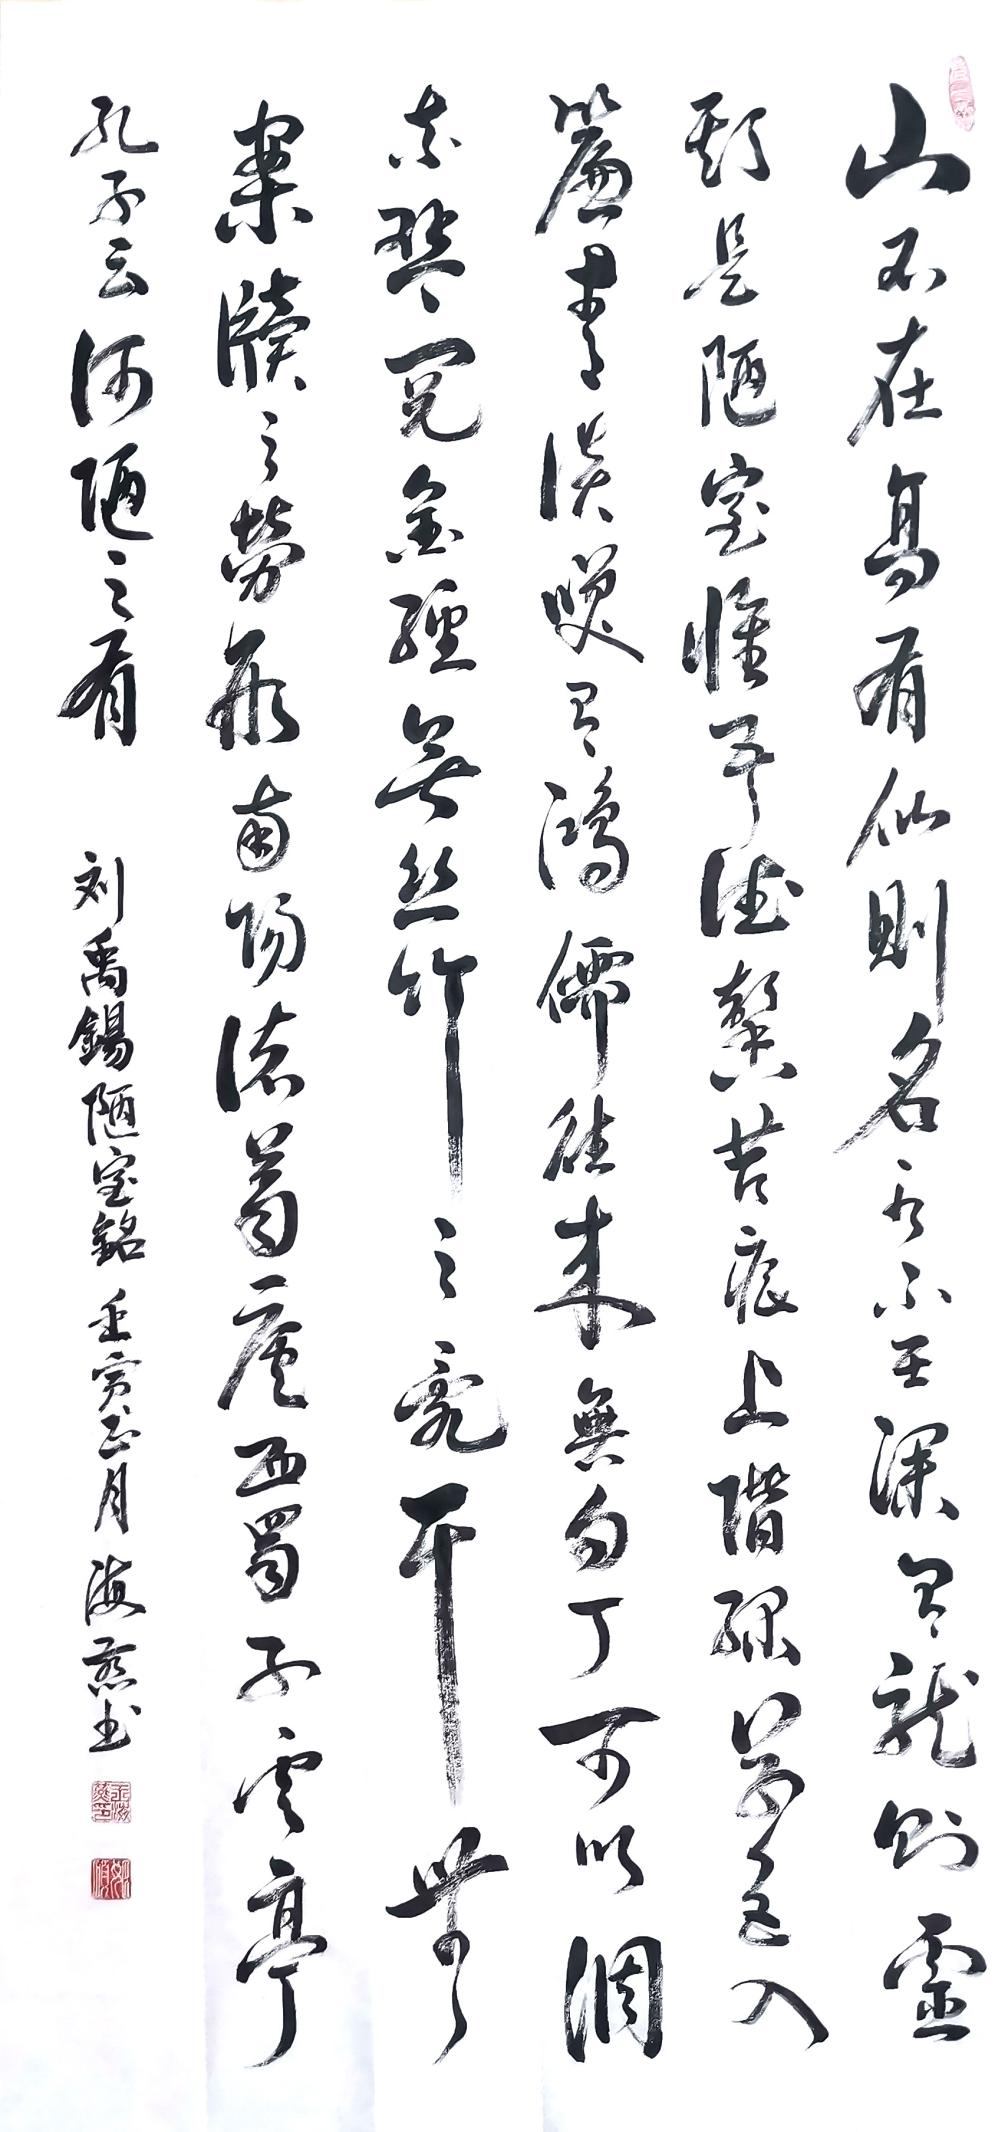 山不在高有仙則名水不在深有龍則靈
斯是陋室惟吾德馨苔痕上階綠草色入
簾青談咲有鴻儒往來無白丁可以調
素琴閱金經無丝竹之亂耳無
案牘之勞形南陽諸葛廬西蜀子雲亭
孔子云何陋之有 刘禹錫陋室銘 壬寅正月 海燕书